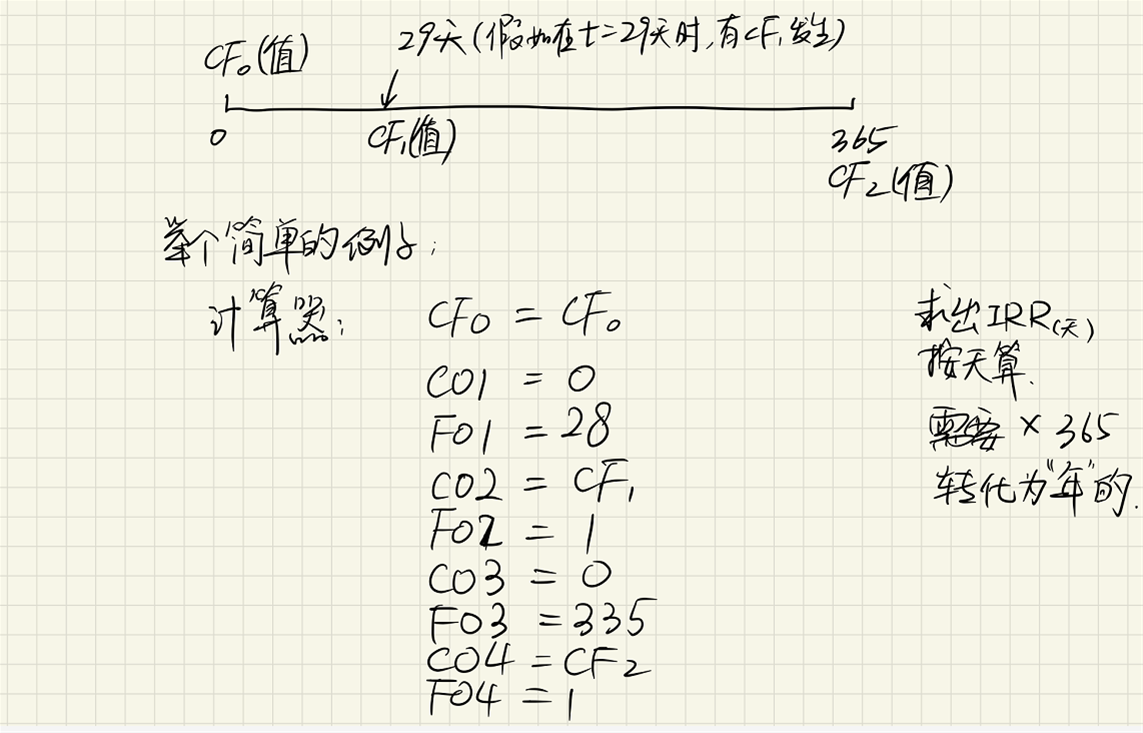 CF₀(值)
29天(假如在t=29天时,有CF₁发生)
0
CF₁(值)
365
CF₂(值)
举个简单的例子:
计算器:
CF0 = CF₀
C01 = 0
F01 = 28
C02 = CF₁
F02 = 1
C03 = 0
F03 = 335
C04 = CF₂
F04 = 1
求出IRR(天)
按天算.
需要 × 365
转化为"年"的.